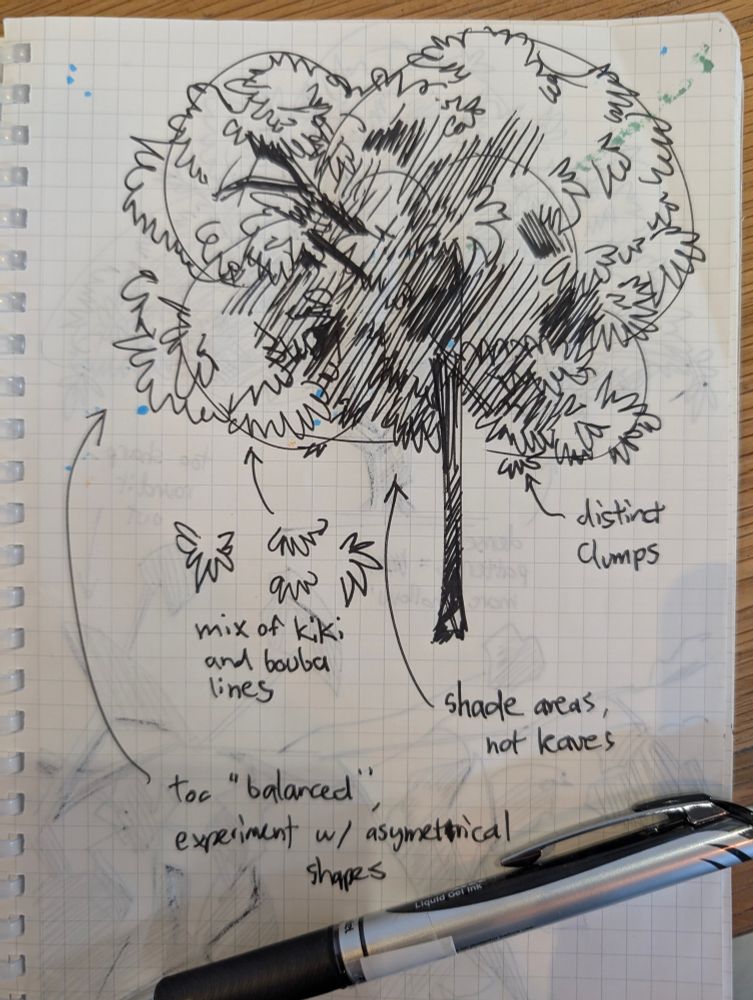 distinct
clumps
mix of kiki
and bouba
lines
shade areas,
not leaves
too "balanced",
experiment w/ asymetrical
shapes
Liquid Gel Ink